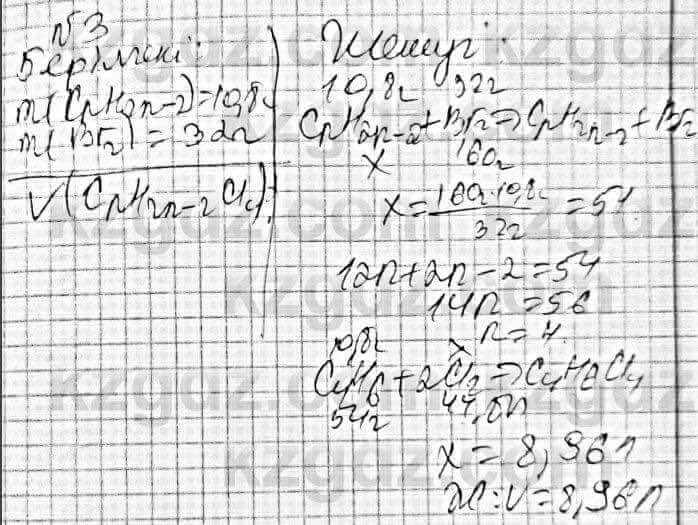 №3
Берілгені:
m(CnH2n-2)=10,8г
m(Br2)=32г
V(CnH2n-2Cl4)?
Шешуі:
10,8г 32г
CnH2n-2+Br2=>CnH2n-2+Br2
x 160г
x=160·10,8г/32г=54.
12n+2n-2=54
14n=56
n=4.
10,8г x
C4H6+2Cl2=>C4H6Cl4
54г 44,8л
x=8,96л
Ж:V=8,96л
kzgaz.com